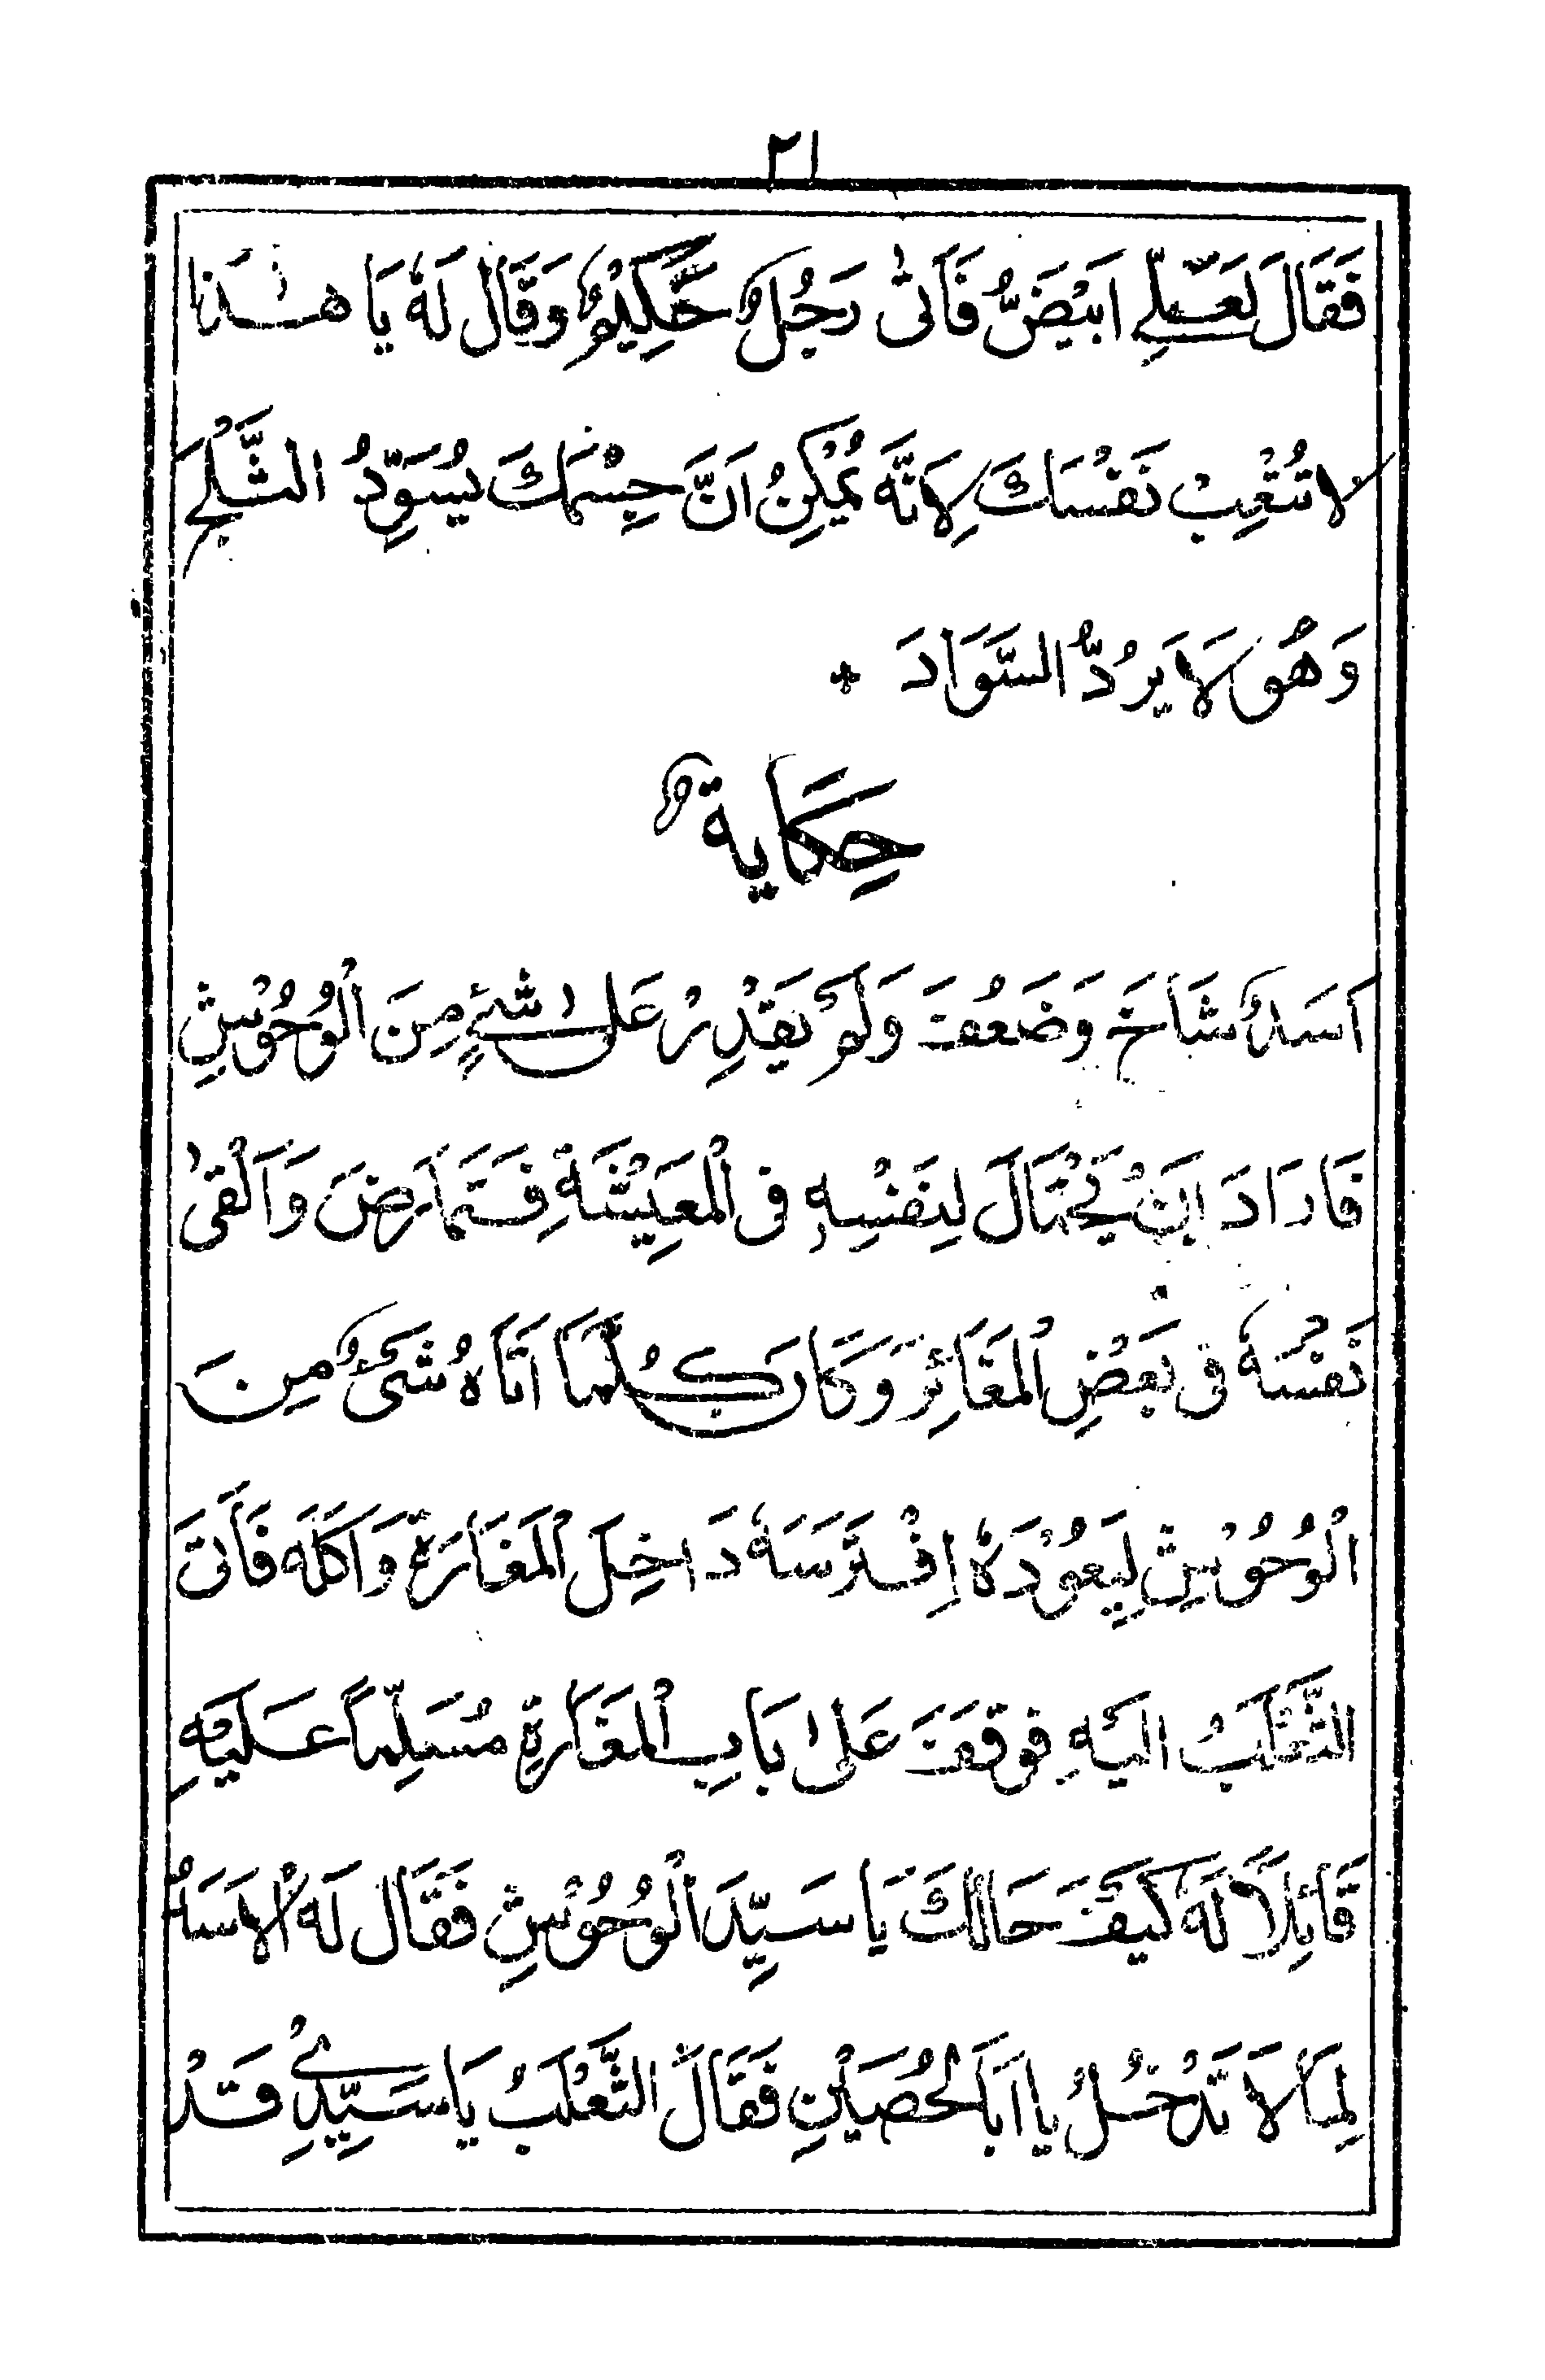 ٢١
فَقَالَ لَعَلِّي اَبْيَضُّ فَاَتٰى رَجُلٌ حَكِيْمٌ وَقَالَ لَهٗ يَا هٰذَا
لَا تُتْعِبْ نَفْسَكَ لِاَنَّهٗ يُمْكِنُ اَنَّ جِسْمَكَ يُسَوِّدُ الثَّلْجَ
وَهُوَ لَا يَرُدُّ السَّوَادَ *
حِكَايَةٌ
اَسَدٌ شَاخَ وَضَعُفَ وَلَمْ يَقْدِرْ عَلٰى شَيْءٍ مِنَ الْوُحُوْشِ
فَاَرَادَ اَنْ يَحْتَالَ لِنَفْسِهٖ فِى الْمَعِيْشَةِ فَتَمَارَضَ وَاَلْقٰى
نَفْسَهٗ فِى بَعْضِ الْمَغَائِرِ وَكَانَ كُلَّمَا اَتَاهُ شَىْءٌ مِنَ
الْوُحُوْشِ لِيَعُوْدَهٗ اِفْتَرَسَهٗ دَاخِلَ الْمَغَارَةِ وَاَكَلَهٗ فَاَتَى
الثَّعْلَبُ اِلَيْهِ فَوَقَفَ عَلٰى بَابِ الْمَغَارَةِ مُسَلِّمًا عَلَيْهِ
قَائِلًا لَهٗ كَيْفَ حَالُكَ يَا سَيِّدَ الْوُحُوْشِ فَقَالَ لَهُ الْاَسَدُ
لِمَا لَا تَدْخُلُ يَا اَبَا الْحُصَيْنِ فَقَالَ الثَّعْلَبُ يَا سَيِّدِيْ قَدْ